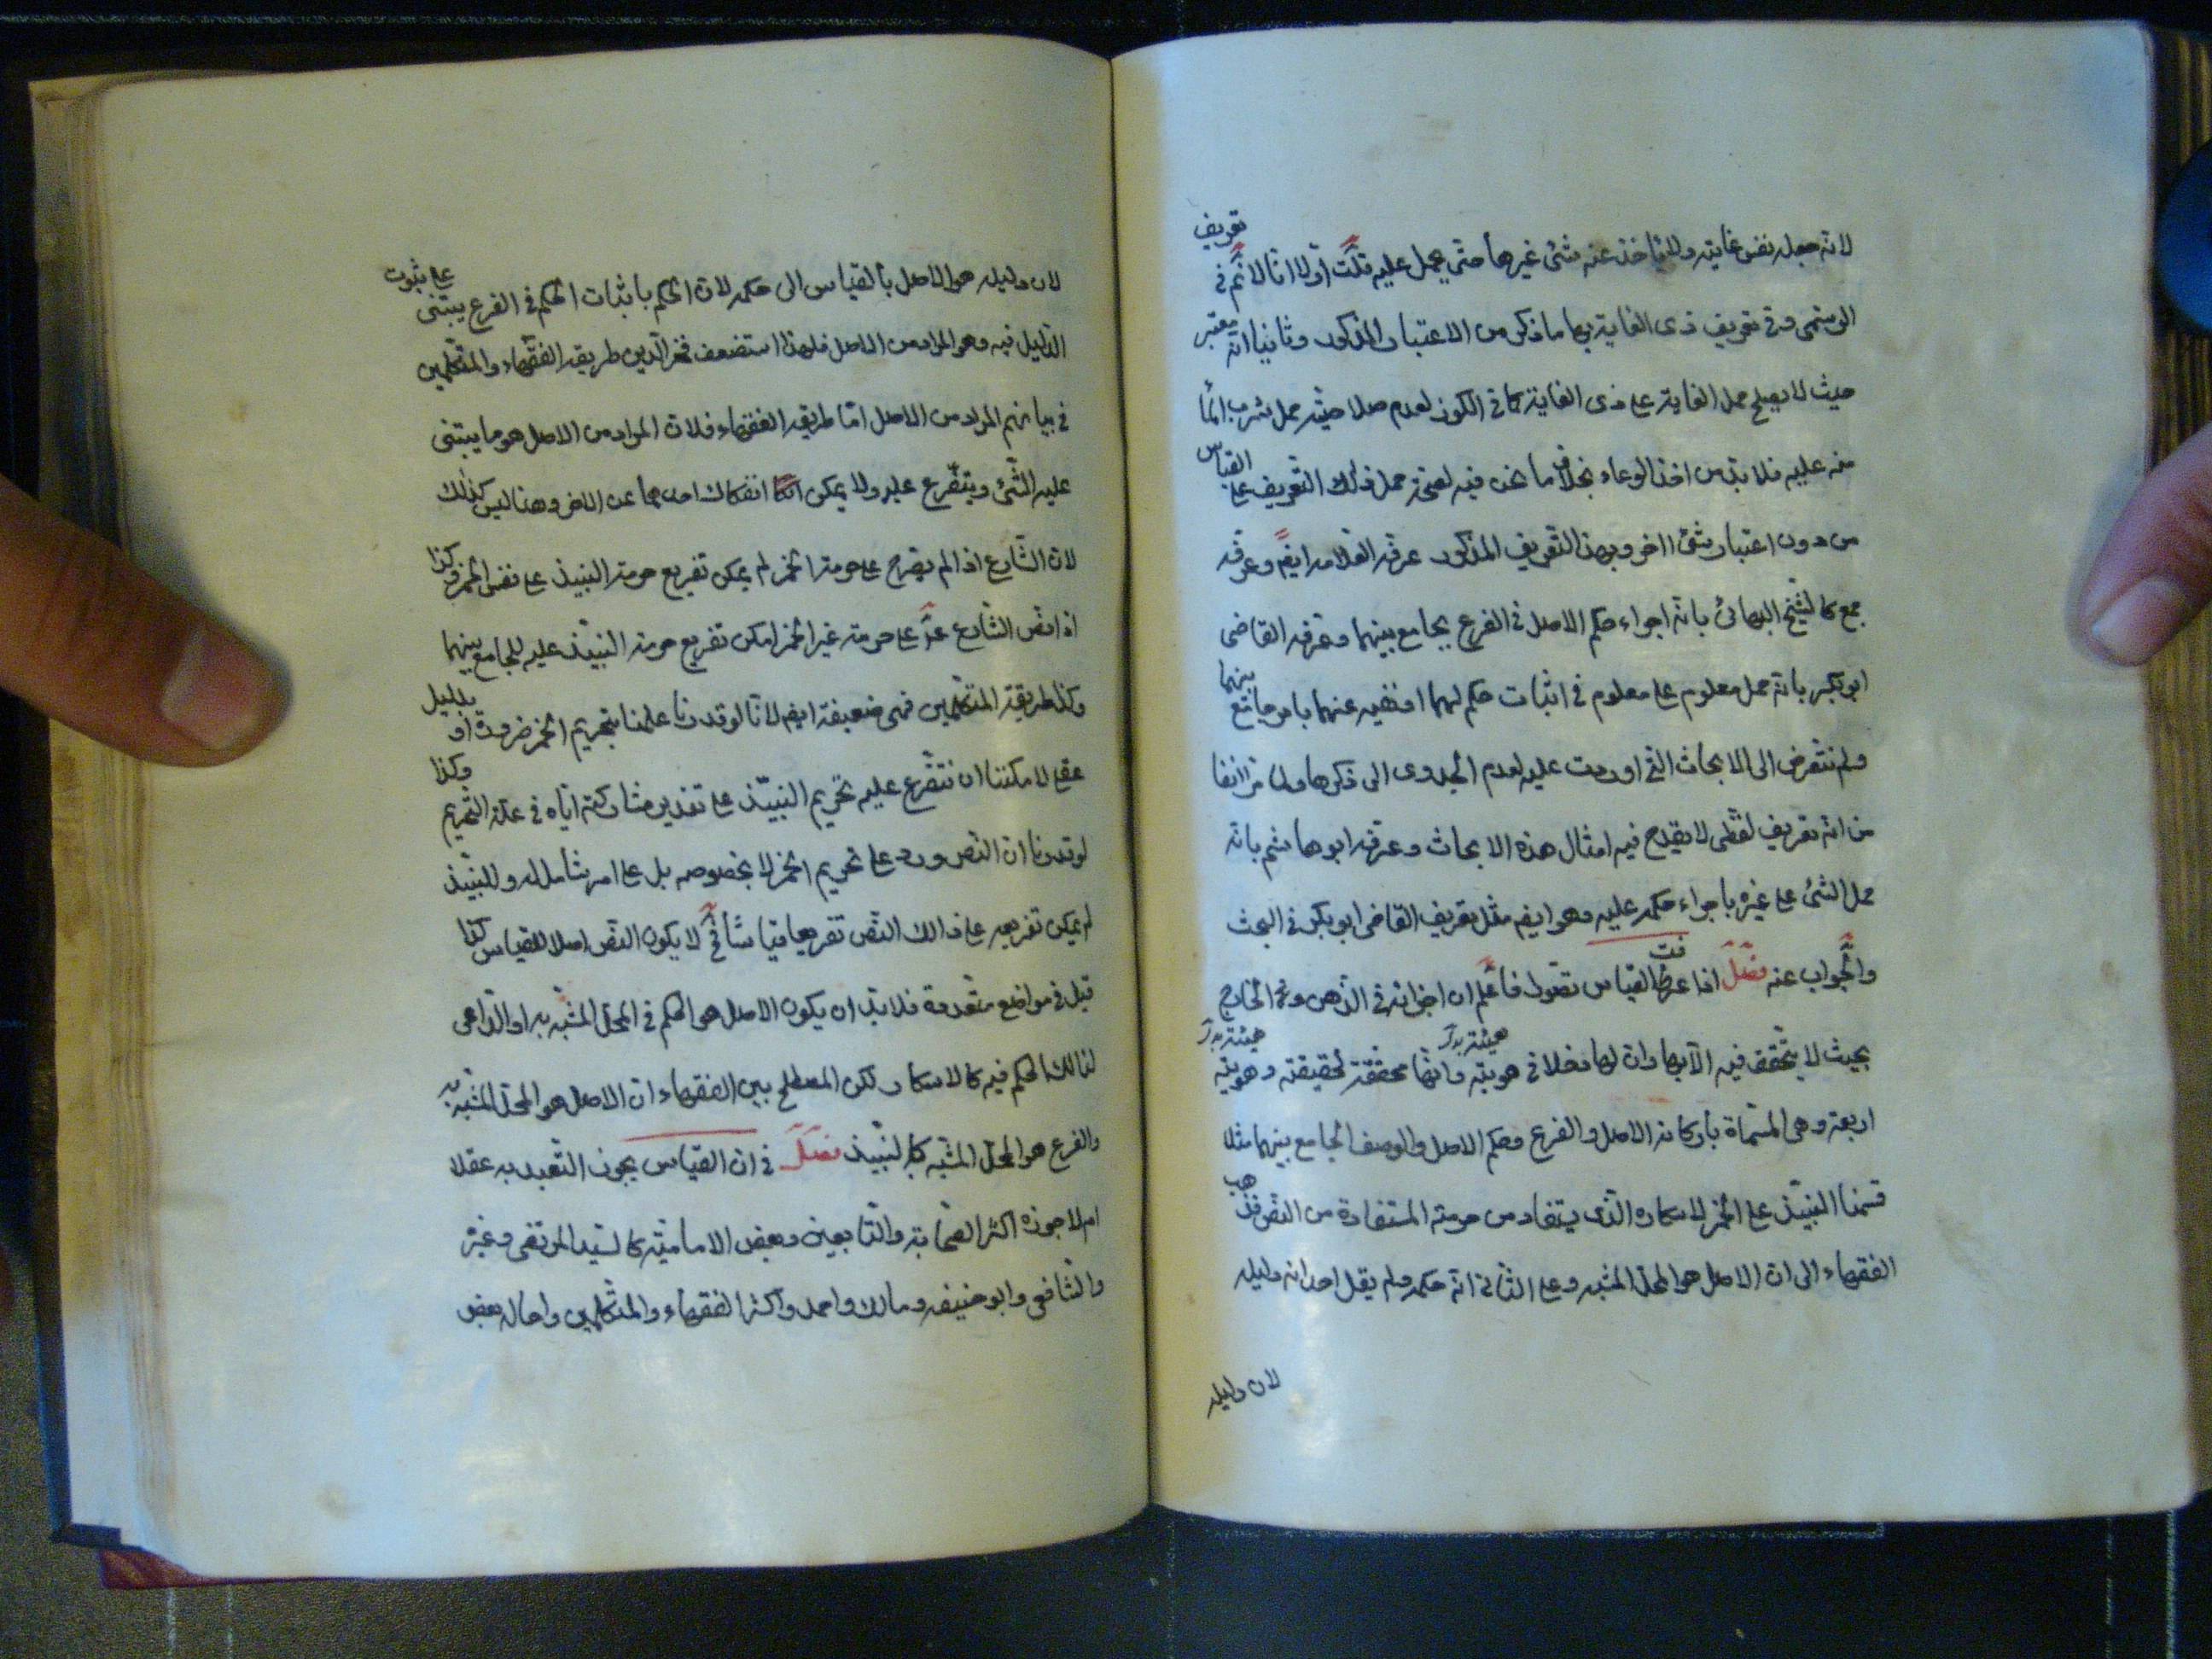 لانه جعل نفس غايته ولم ياخذ عنه شئ غيرها حتى يحمل عليه قلت اولا انا لا نم في تعريف
الرسمى وفى تعريف ذى الغاية بها ما ذكر من الاعتبار المذكور وثانيا انه معتبر
حيث لا يصلح حمل الغاية على ذى الغاية كما فى الكوز لعدم صلاحية حمل شرب الماء
منه عليه فلا بد من اخذ الوعاء بخلاف ما نحن فيه لصحة حمل ذلك التعريف على القياس
من دون اعتبار شئ اخر وبهذا التعريف المذكور عرفه العلامه ايضا وعرفه
جمع كالشيخ البهائى بانه اجراء حكم الاصل فى الفرع بجامع بينهما وعرفه القاضى
ابو بكر بانه حمل معلوم على معلوم فى اثبات حكم لهما او نفيه عنهما بامر جامع بينهما
ولم نتعرض الى الابحاث التى اوردت عليه لعدم الجدوى الى ذكرها ولما مر انفا
من انه تعريف لفظى لا يقدح فيه امثال هذه الابحاث وعرفه ابو هاشم بانه
حمل الشئ على غيره باجراء حكمه عليه وهو ايضا مثل تعريف القاضى ابو بكر فى البحث
والجواب عنه فصل اذا عرفت القياس تصورا فاعلم ان اجزائه فى الذهن وفى الخارج
بحيث لا يتحقق فيه الا بها وان لها دخلا فى هويته وانها محققة لحقيقته وهويته
هيئته بدل هيئته بدل
اربعة وهى المسماة باركانه الاصل والفرع وحكم الاصل والوصف الجامع بينهما مثلا
قسنا النبيذ على الخمر لاسكاره الذى يستفاد من حرمته المستفادة من النص فذهب
الفقهاء الى ان الاصل هو المحل المشبه وعلى الثانى انه حكمه ولم يقل احد انه دليله
لان دليله
لان دليله هو الاصل بالقياس الى حكمه لان الحكم باثبات الحكم فى الفرع يبتنى على ثبوت
الدليل فيه وهو المراد من الاصل فلهذا استضعف فخر الدين طريقه الفقهاء والمتكلمين
فى بيانهم المراد من الاصل اما طريقه الفقهاء فلان المراد من الاصل هو ما يبتنى
عليه الشئ ويتفرع عليه ولا يمكن انفكاك احدهما عن الاخر وهنا ليس كذلك
لان الشارع اذا لم يصرح على حرمة الخمر لم يمكن تفريع حرمة النبيذ على نفس الخمر وكذا
اذا نص الشارع على حرمة غير الخمر امكن تفريع حرمة النبيذ عليه للجامع بينهما
وكذا طريقة المتكلمين فهى ضعيفة ايضا لانا لو قدرنا علمنا بتحريم الخمر ضرورة او بدليل
عقلى لامكننا ان نتفرع عليه تحريم النبيذ على تقدير مشاركته اياه فى علة التحريم وكذا
لو قدرنا ان النص ورد على تحريم الخمر لا بخصوصه بل على امر شامل له وللنبيذ
لم يمكن تفريعه على ذالك النص تفريعا قياسيا فح لا يكون النص اصلا للقياس كذا
قيل فى مواضع متعددة فلا بد ان يكون الاصل هو الحكم فى المحل المشبه به او الداعى
لذالك الحكم فيه كالاسكار ولكن المصطلح بين الفقهاء ان الاصل هو المحل المشبه به
والفرع هو المحل المشبه كالنبيذ فصل فى ان القياس يجوز التعبد به عقلا
ام لا جوزه اكثر الصحابة والتابعين وبعض الامامية كالسيد المرتضى وغيره
والشافعى وابو حنيفه ومالك واحمد واكثر الفقهاء والمتكلمين واحاله بعض